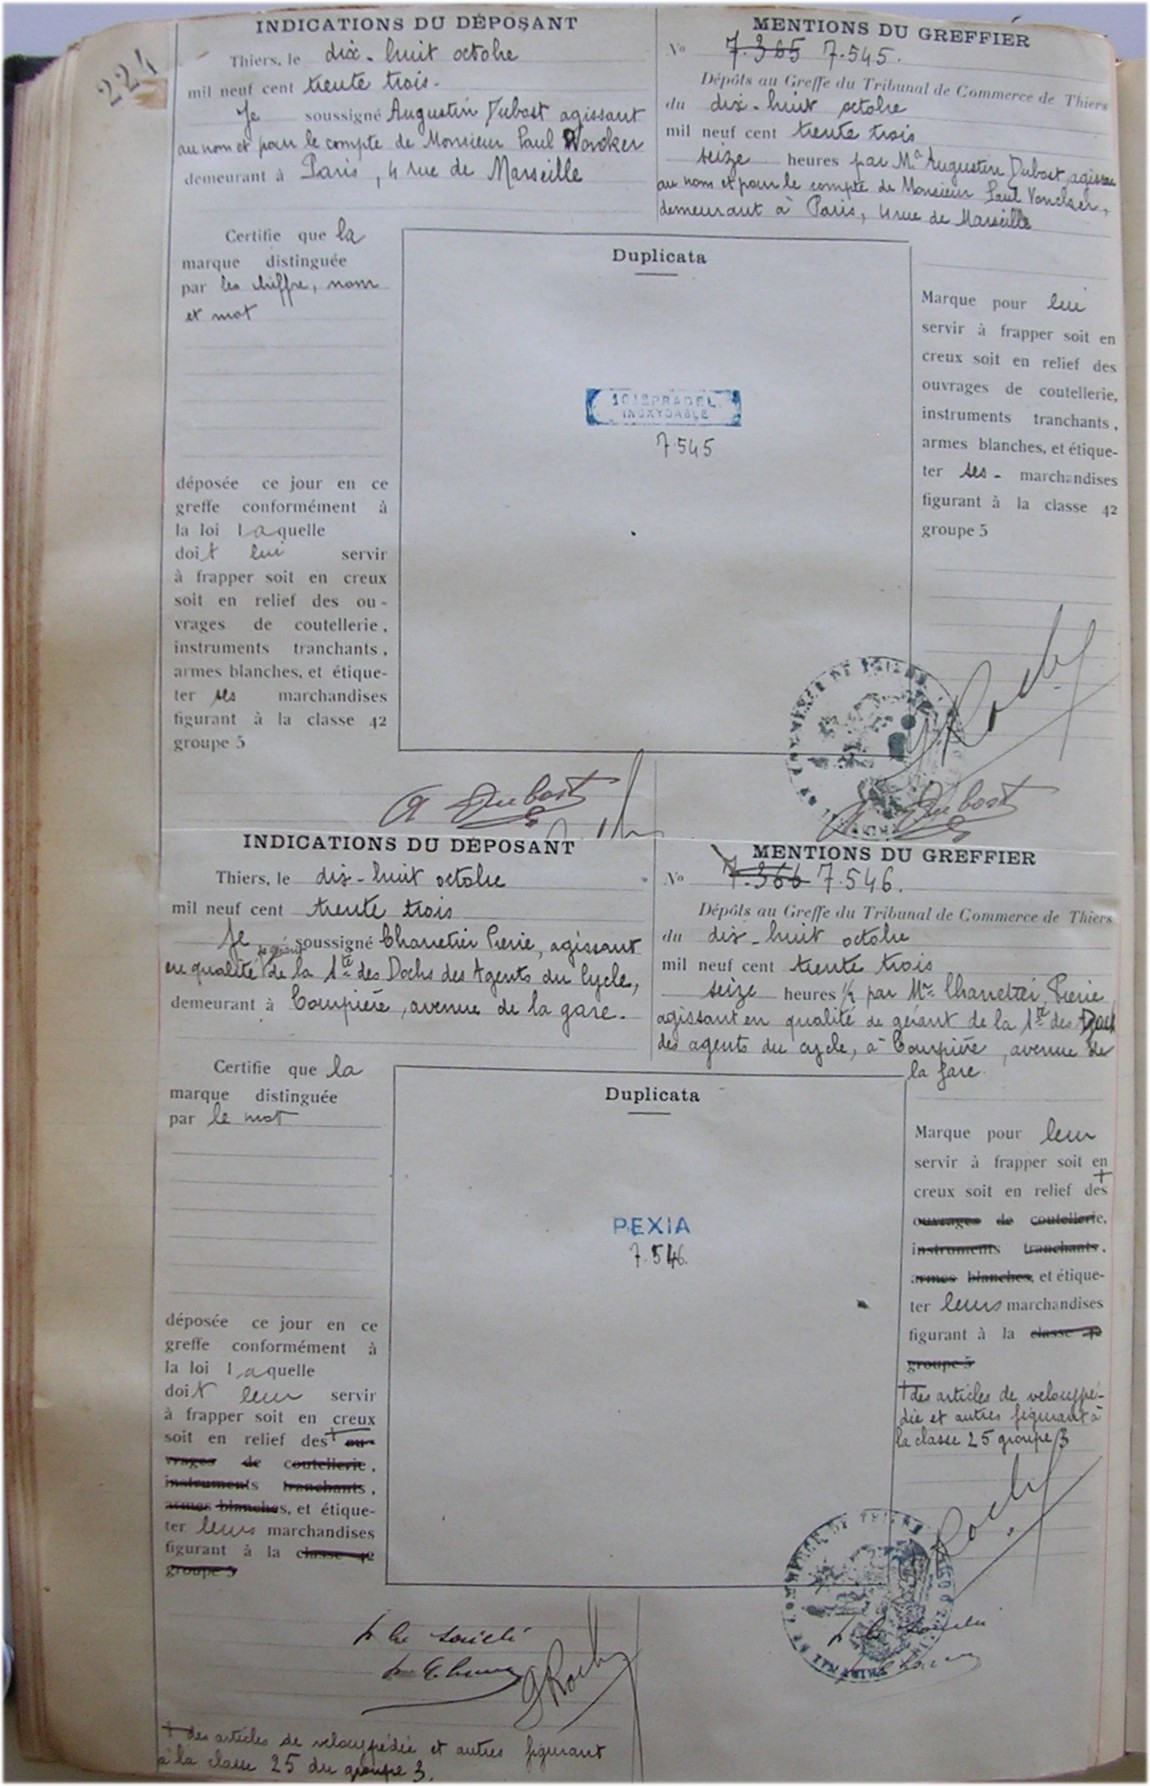 224
INDICATIONS DU DÉPOSANT
Thiers, le dix-huit octobre
mil neuf cent trente trois.
Je soussigné Augustin Dubost agissant
au nom et pour le compte de Monsieur Paul
demeurant à Paris, 4 rue de Marseille
MENTIONS DU GREFFIER
No 7.365 7.545.
Dépôts au Greffe du Tribunal de Commerce de Thiers
du dix-huit octobre
mil neuf cent trente trois
seize heures par Mr Augustin Dubost, agissant
au nom et pour le compte de Monsieur Paul
demeurant à Paris, 4 rue de Marseille
Certifie que la
marque distinguée
par les chiffre, nom
et mot
déposée ce jour en ce
greffe conformément à
la loi laquelle
doit lui servir
à frapper soit en creux
soit en relief des ou-
vrages de coutellerie,
instruments tranchants,
armes blanches, et étique-
ter ses marchandises
figurant à la classe 42
groupe 5
Duplicata
PRADEL
INOXYDABLE
7.545
Marque pour lui
servir à frapper soit en
creux soit en relief des
ouvrages de coutellerie,
instruments tranchants,
armes blanches, et étique-
ter ses - marchandises
figurant à la classe 42
groupe 5
G Roch
A Dubost
A Dubost
INDICATIONS DU DÉPOSANT
Thiers, le dix-huit octobre
mil neuf cent trente trois
Je soussigné Charretier Pierre, agissant
en qualité de gérant de la Sté des Docks des Agents du Cycle,
demeurant à Courpière, avenue de la gare.
MENTIONS DU GREFFIER
No 7.366 7.546.
Dépôts au Greffe du Tribunal de Commerce de Thiers
du dix-huit octobre
mil neuf cent trente trois
seize heures ½ par Mr Charretier, Pierre
agissant en qualité de gérant de la Sté des Docks
des agents du cycle, à Courpière, avenue de
la gare
Certifie que la
marque distinguée
par le mot
déposée ce jour en ce
greffe conformément à
la loi laquelle
doit leur servir
à frapper soit en creux
soit en relief des + ou-
vrages de coutellerie,
instruments tranchants,
armes blanches, et étique-
ter leurs marchandises
figurant à la classe 42
groupe 5
Duplicata
PEXIA
7.546.
Marque pour leur
servir à frapper soit en
creux soit en relief des +
ouvrages de coutellerie,
instruments tranchants,
armes blanches, et étique-
ter leurs marchandises
figurant à la classe 42
groupe 5
+ des articles de vélocipé-
die et autres figurant à
la classe 25 groupe 3
G Roch
p la société
G Roch
p la société
+ des articles de vélocipédie et autres figurant
à la classe 25 du groupe 3.